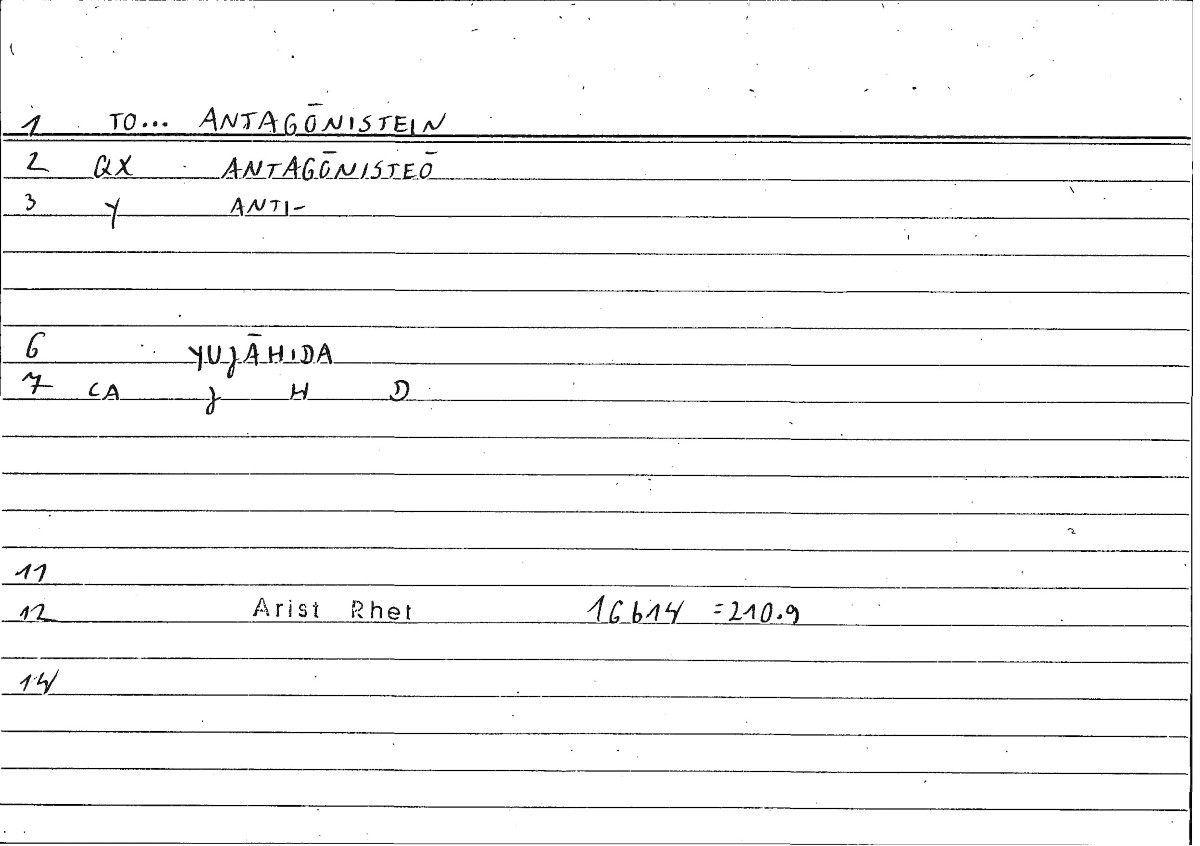 1 TO... ANTAGŌNISTEIN
2 QX ANTAGŌNISTEŌ
3 Y ANTI-
6 YUJĀHIDA
7 CA J H D
11
12 Arist Rhet 16b14 =210.9
14